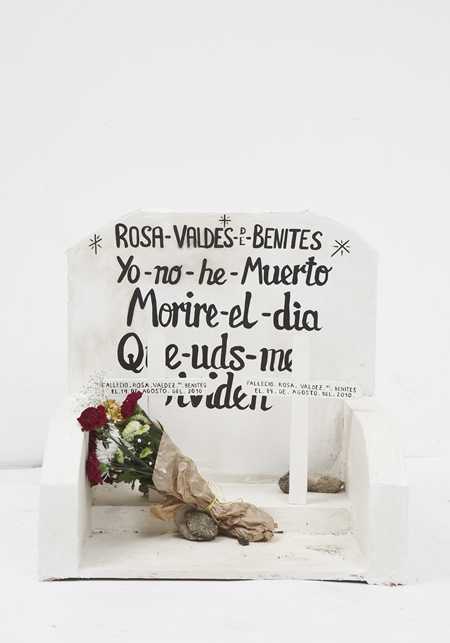 ROSA-VALDES-DE-BENITES
Yo-no-he-Muerto
Morire-el-dia
Que-uds-me
lviden
FALLECIO.ROSA.VALDEZ. BENITES
EL.19.DE.AGOSTO.DEL.2010
FALLECIO.ROSA.VALDEZ. BENITES
EL.19.DE.AGOSTO.DEL.2010